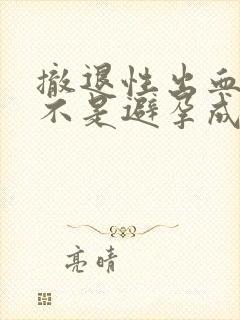 撤退性出血
不是避孕成
亮晴